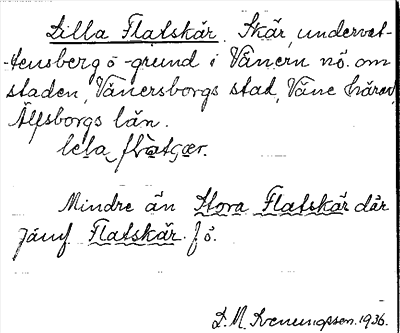 Lilla Flatskär. Skär, undervat-
-tensberg o -grund i Vänern nö. om
staden, Vänersborgs stad, Väne härad,
Älfsborgs län.
lɩla flatʂær.
Mindre än Stora Flatskär där
Jämf Flatskär f ö.
D. M. Svenungsson. 1936.